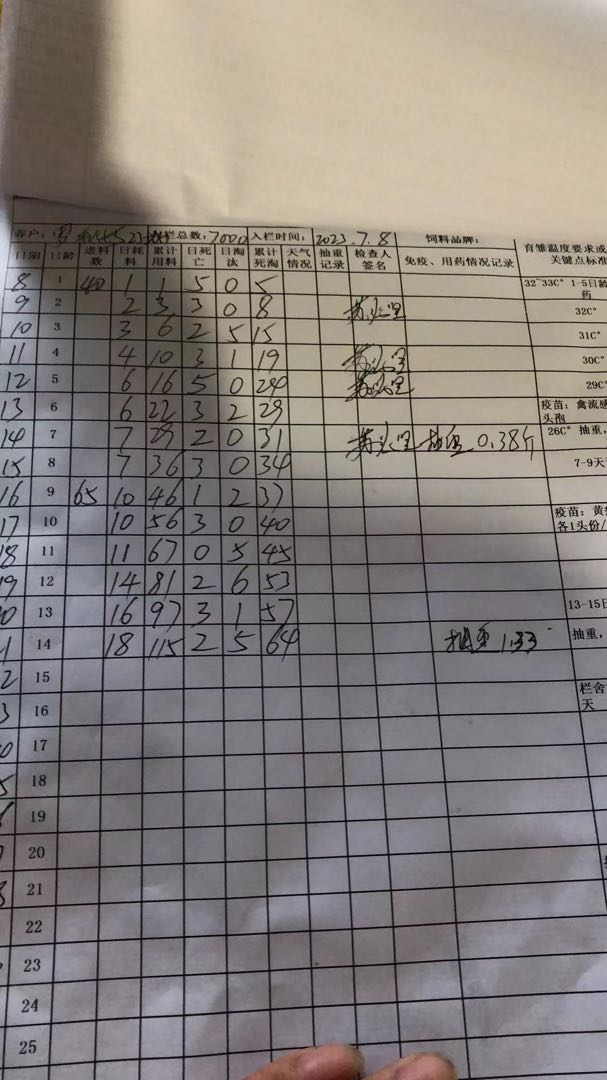 养户: 入栏总数: 7000 入栏时间: 2023.7.8 饲料品牌:
日期 日龄 进料数 日耗料 累计用料 日死亡 日淘汰 累计死淘 天气情况 抽重记录 检查人签名 免疫、用药情况记录 育雏温度要求或 关键点标准
8 1 40 1 1 5 0 5 32~33C° 1-5日龄 药
9 2 2 3 3 0 8 32C°
10 3 3 6 2 5 15 31C°
11 4 4 10 3 1 19 30C°
12 5 6 16 5 0 24 29C°
13 6 6 22 3 2 29 疫苗: 禽流感 头孢
14 7 7 29 2 0 31 抽重 0.38斤 26C° 抽重,
15 8 7 36 3 0 34 7-9天
16 9 65 10 46 1 2 37
17 10 10 56 3 0 40 疫苗: 各1头份/
18 11 11 67 0 5 45
19 12 14 81 2 6 53
20 13 16 97 3 1 57 13-15日
1 14 18 115 2 5 64 抽重 1.33 抽重,
2 15 栏舍 天
3 16
17
5 18
19
20
21
22
23
24
25